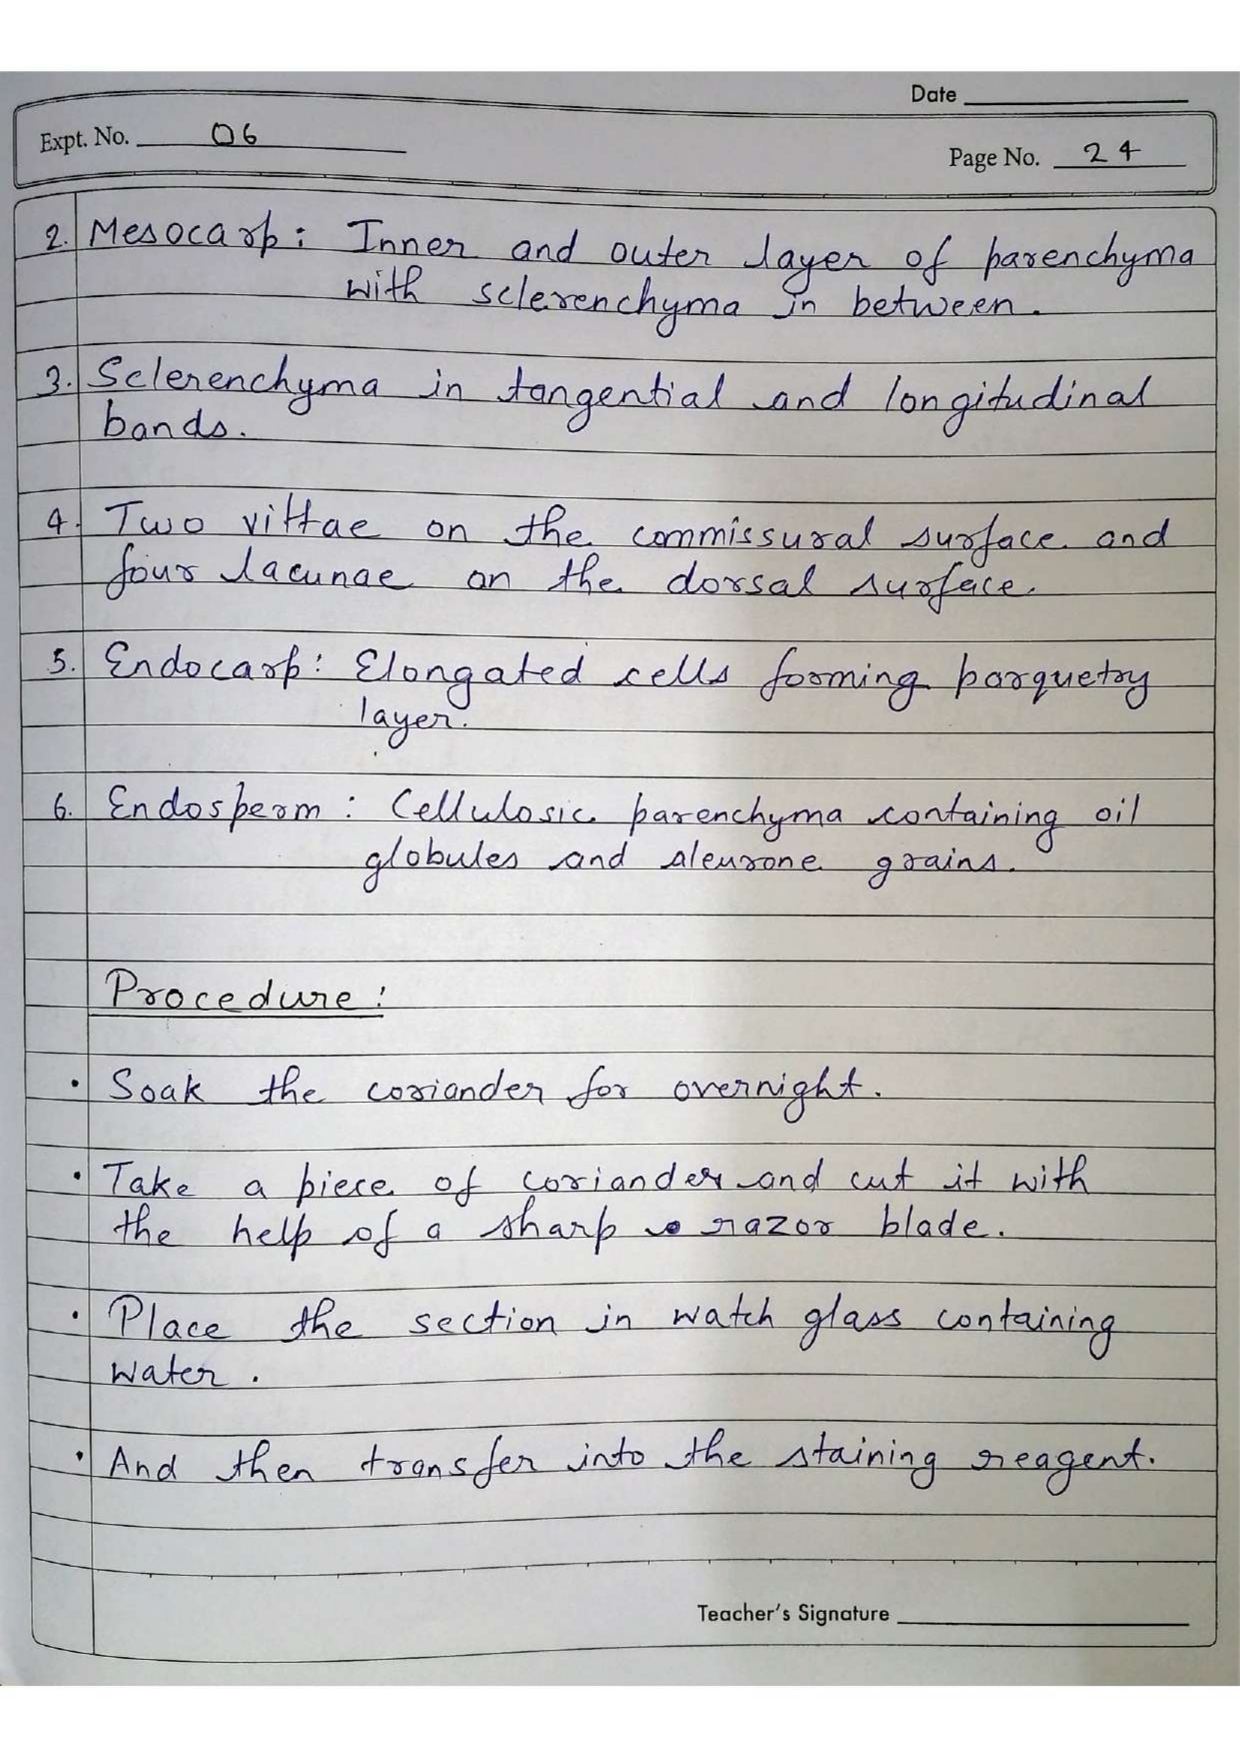 Date
Expt. No. 06
Page No. 24
2. Mesocarp: Inner and outer layer of parenchyma
with sclerenchyma in between.
3. Sclerenchyma in tangential and longitudinal
bands.
4. Two vittae on the commissural surface and
four lacunae on the dorsal surface.
5. Endocarp: Elongated cells forming parquetry
layer.
6. Endosperm: Cellulosic parenchyma containing oil
globules and aleurone grains.
Procedure:
• Soak the coriander for overnight.
• Take a piece of coriander and cut it with
the help of a sharp razor blade.
• Place the section in watch glass containing
water.
• And then transfer into the staining reagent.
Teacher's Signature